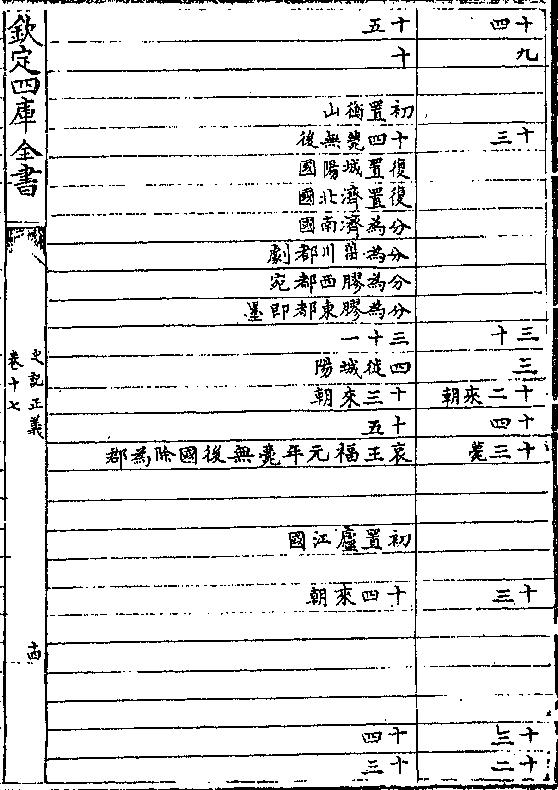 十四
九
十三
三十
三
十二來朝
十四
十三薨
十三
十三
十二
十五
十
初置衡山
十四薨無後
復置城陽國
復置濟北國
分為濟南國
分為菑川都劇
分為膠西都宛
分為膠東都即墨
三十一
四徙城陽
十三來朝
十五
哀王福元年薨無後國除為郡
初置廬江國
十四來朝
十四
十三
欽定四庫全書
史記正義
卷十七
十四